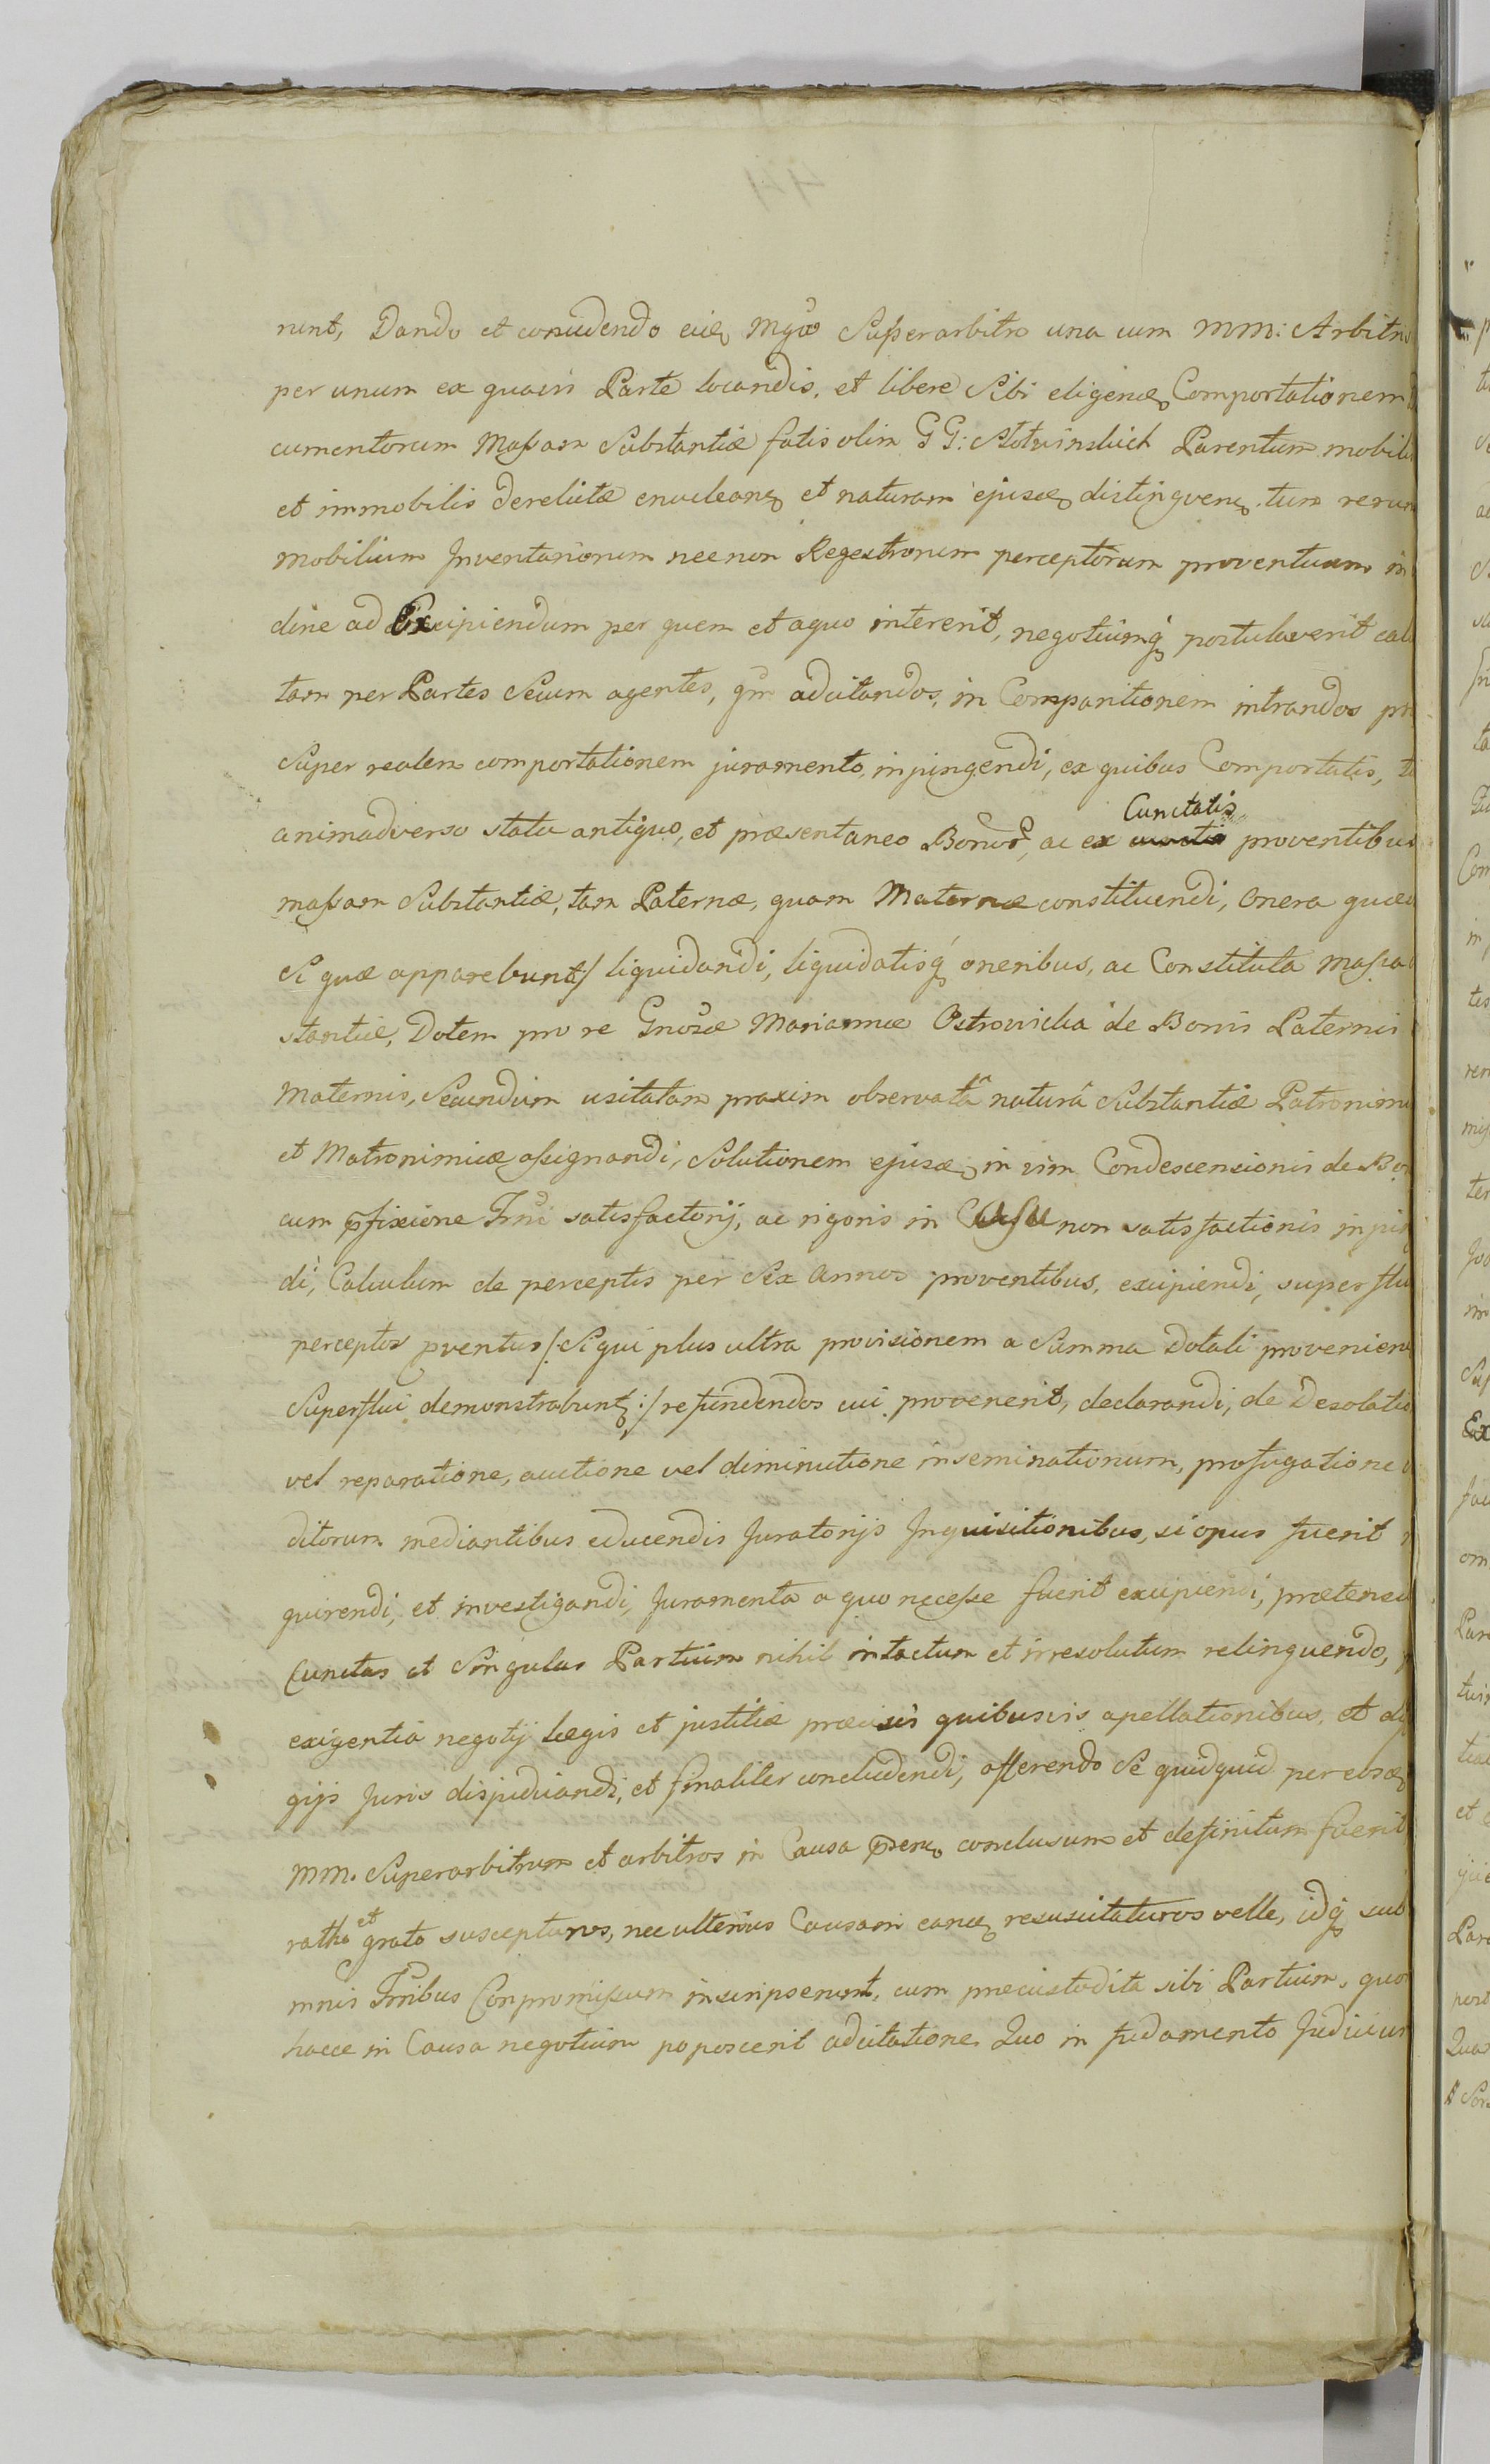 runt, Dando et concedendo eid Mgco Superarbitro una cum MM: Arbitri
per unum ex quavis Parte locandis, et libere Sibi eligend Comportationem
cumentorum Massam Substantiæ fatis olim GG: Slotwinskich Parentum mobil
et immobilis derelictæ enucleand et naturam ejusd distingvend tum rerum
mobilium Inventariorum nec non Regestrorum perceptorum proventuum in
dine ad Excipiendum per quem et a quo intererit, negotiumq postulaverit cal
tam per Partes Secum agentes, qm adcitandos, in Comparitionem intrandos
Super realem comportationem juramento, injungendi, ex quibus Comportatis,
animadverso statu antiquo, et præsentaneo Bonor, ac ex Cunctatis proventibus
massam Substantiæ, tam Paternæ, quam Maternæ constituendi, Onera quæ
Si quæ apparebunt:/ liquidandi, liquidatisq oneribus, ac Constituta Massa
stantiæ, Dotem pro re Gnosæ Mariannæ Ostrowicka de Bonis Paternis
Maternis, Secundum usitatam praxim observatâ naturâ Substantiæ Patronimi
et Matronimicæ assignandi, Solutionem ejusd in vim Condescensionis de Bo
cum pfixione Trni satisfactorij, ac rigoris in Casu non satisfactionis injun
di, Calculum de perceptis per Sex Annos proventibus, excipiendi, superflu
perceptos pventus /: Si qui plus ultra provisionem a Summa Dotali provenien
Superflui demonstrabunt :/ refundendos cui provenerit, declarandi, de Desolatio
vel reparatione, auctione vel diminutione inseminationum, profugatione
ditorum mediantibus educendis Juratorijs Inquisitionibus, si opus fuerit
quirendi, et investigandi, Juramenta a quo necesse fuerit excipiendi, prætens
Cunctas et Singulas Partium nihil intactum et irresolutum relinquendo,
exigentia negotij Legis et justitiæ præcisis quibusvis apellationibus, et
gijs Juris disjudicandi, et finaliter concludendi, asserendo Se quidquid per eosd
MM. Superarbitrum et arbitros in Causa psenti conclusum et definitum fuerit
ratho et grato suscepturos, nec ulterius Causam eand resuscitaturos velle, idq sub
mnis Trnibus Conpromissum inscripserunt, cum præcustodita sibi Partium, quo
hacce in Causa negotium poposcerit adcitatione. Quo in fudamento Judicium